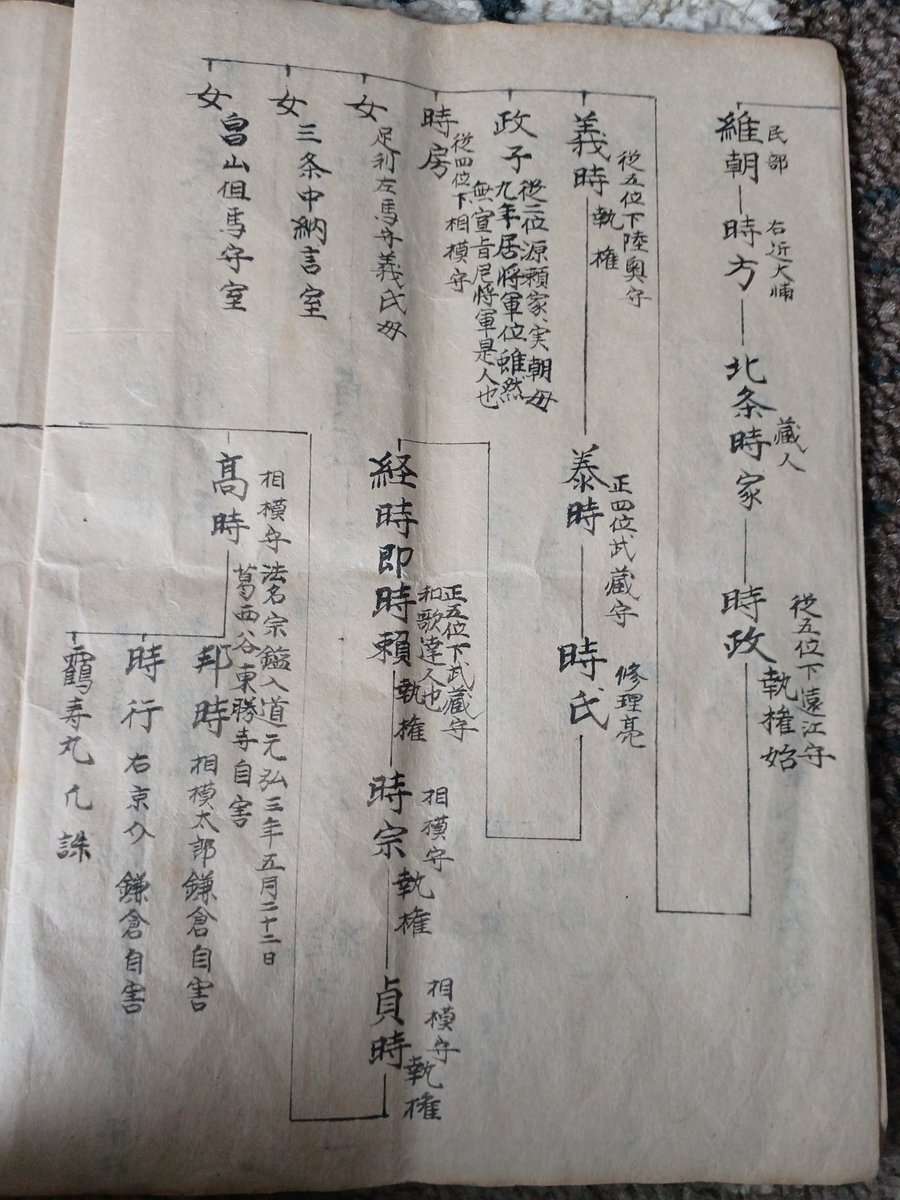 維朝 民部
時方 右近大輔
北条時家 蔵人
時政 従五位下遠江守
執権始
義時 従五位下陸奥守
執権
泰時 正四位武蔵守
時氏 修理亮
政子 従二位源頼家、実朝母
九年居将軍位雖然
無宣旨尼将軍是人也
時房 従四位下相模守
女 足利左馬守義氏母
女 三条中納言室
女 畠山但馬守室
経時即時頼 正五位下武蔵守
和歌達人也
執権
時宗 相模守
執権
貞時 相模守
執権
高時 相模守法名宗鑑入道元弘三年五月二十二日
葛西谷東勝寺自害
邦時 相模太郎鎌倉自害
時行 右京介鎌倉自害
霸寿丸 誅